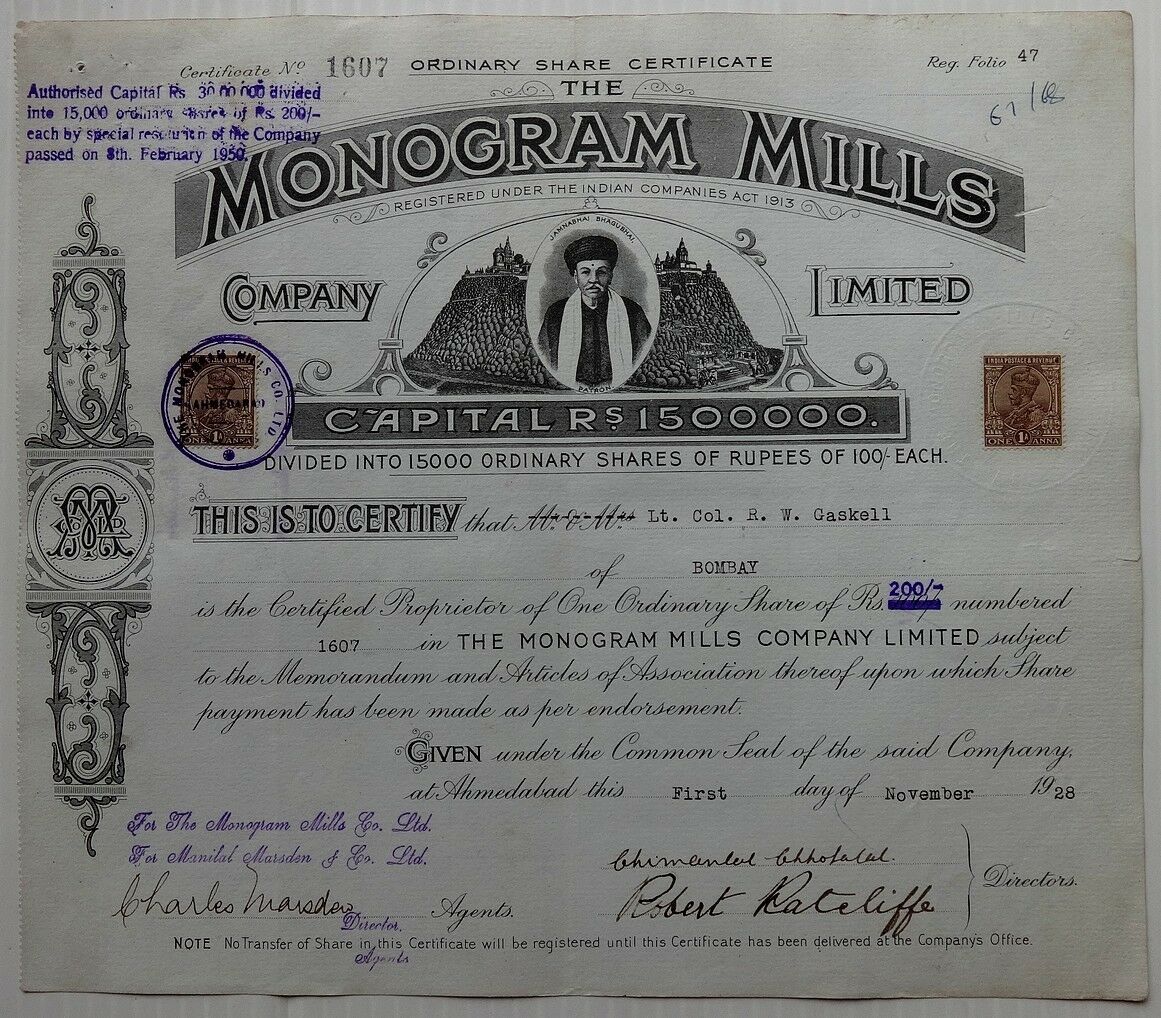 Certificate No 1607 ORDINARY SHARE CERTIFICATE Reg. Folio 47
61/68
Authorised Capital Rs 30 00 000 divided
into 15,000 ordinary shares of Rs. 200/-
each by special resolution of the Company
passed on 8th. February 1950.
THE
MONOGRAM MILLS
REGISTERED UNDER THE INDIAN COMPANIES ACT 1913
JAMNABHAI BHAGUBHAI.
COMPANY LIMITED
PATRON
THE MONOGRAM MILLS CO. LTD
AHMEDABAD
ONE 1A ANNA
INDIA POSTAGE & REVENUE
ONE 1A ANNA
CAPITAL RS 1500000.
DIVIDED INTO 15000 ORDINARY SHARES OF RUPEES OF 100/- EACH.
THIS IS TO CERTIFY that Lt. Col. R. W. Gaskell
of BOMBAY
is the Certified Proprietor of One Ordinary Share of Rs. 200/- numbered
1607 in THE MONOGRAM MILLS COMPANY LIMITED subject
to the Memorandum and Articles of Association thereof upon which Share
payment has been made as per endorsement.
GIVEN under the Common Seal of the said Company,
at Ahmedabad this First day of November 1928
For The Monogram Mills Co. Ltd.
For Manilal Marsden & Co. Ltd.
Chimanlal Chhotalal.
Charles Marsden Agents. Robert Ratcliffe Directors.
Director.
NOTE No Transfer of Share in this Certificate will be registered until this Certificate has been delivered at the Company's Office.
Agents